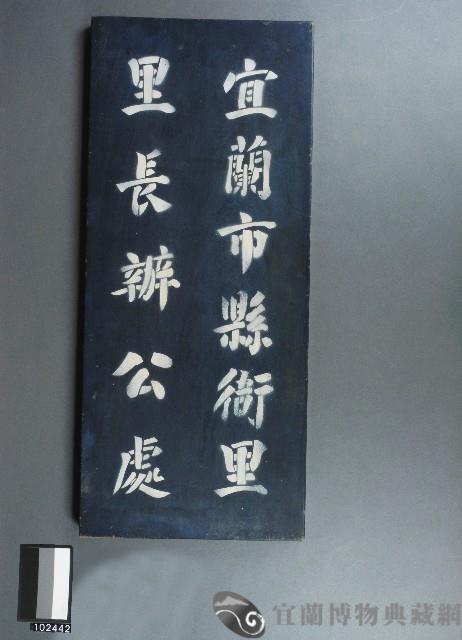 宜蘭市縣衙里
里長辦公處
102442
宜蘭博物典藏網